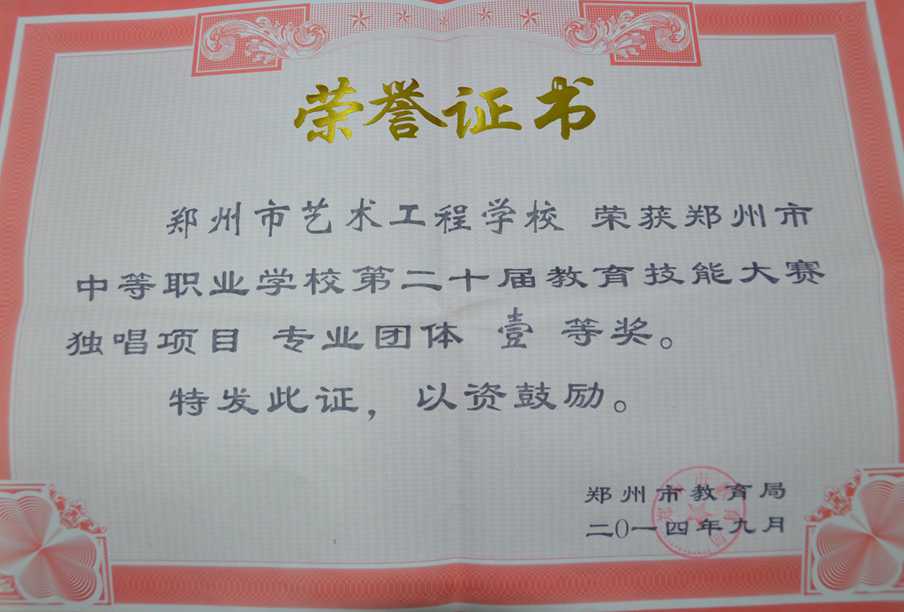 荣誉证书
郑州市艺术工程学校 荣获郑州市
中等职业学校第二十届教育技能大赛
独唱项目 专业团体 壹 等奖。
特发此证，以资鼓励。
郑州市教育局
二〇一四年九月